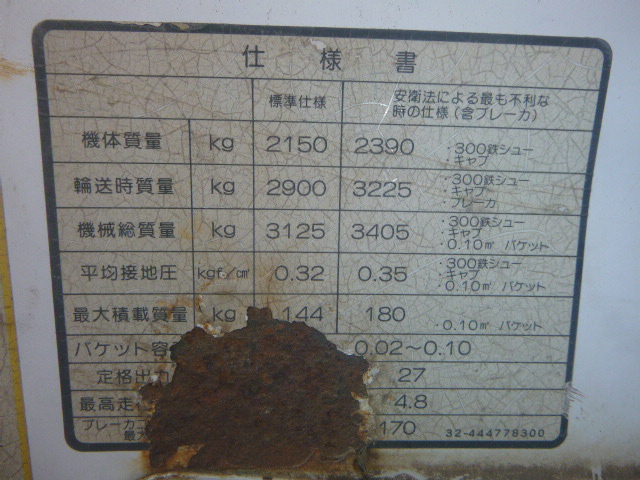 仕様書
標準仕様 安衛法による最も不利な
時の仕様(含ブレーカ)
機体質量 kg 2150 2390 ・300鉄シュー
・キャブ
輸送時質量 kg 2900 3225 ・300鉄シュー
・キャブ
・ブレーカ
機械総質量 kg 3125 3405 ・300鉄シュー
・キャブ
・0.10㎥ バケット
平均接地圧 kgf/c㎡ 0.32 0.35 ・300鉄シュー
・キャブ
・0.10㎥ バケット
最大積載質量 kg 144 180 ・0.10㎥ バケット
バケット容 0.02〜0.10
定格出力 27
最高走 4.8
ブレーカ 170
最 32-444778300